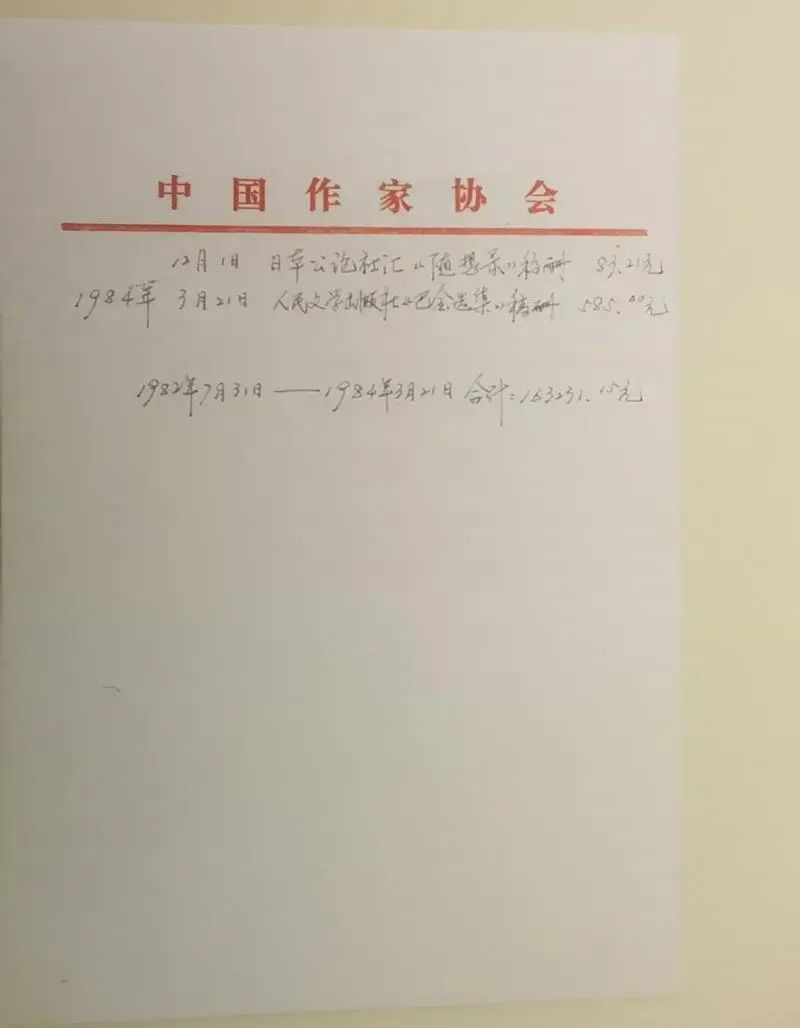 中国作家协会
12月1日 日本公论社汇《随想录》稿酬 83.21元
1984年 3月21日 人民文学出版社《巴金选集》稿酬 585.00元
1982年7月31日——1984年3月21日 合计:163231.15元